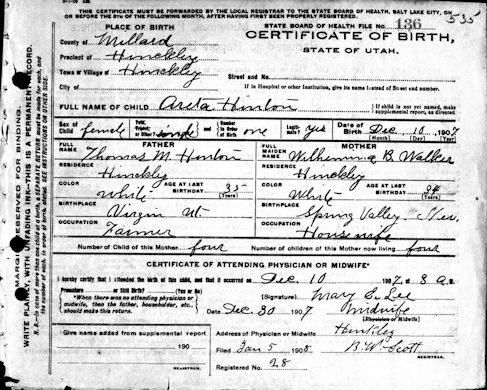 THIS CERTIFICATE MUST BE FORWARDED BY THE LOCAL REGISTRAR TO THE STATE BOARD OF HEALTH, SALT LAKE CITY, ON
OR BEFORE THE 5TH OF THE FOLLOWING MONTH, AFTER HAVING FIRST BEEN PROPERLY REGISTERED.
535
PLACE OF BIRTH
STATE BOARD OF HEALTH FILE NO. 136
County of Millard
CERTIFICATE OF BIRTH,
Precinct of Hinckley
STATE OF UTAH.
Town or Village of Hinckley
Street and No.
City of
If in Hospital or other Institution, give its name instead of Street and number.
FULL NAME OF CHILD Areta Hinton
If child is not yet named, make supplemental report, as directed
Sex of Child female
Twin, Triplet or Other single
and Number in Order of Birth one
Legitimate yes
Date of Birth Dec 10 1907
FATHER
MOTHER
FULL NAME Thomas M. Hinton
FULL MAIDEN NAME Wilhemina B. Walker
RESIDENCE Hinckley
RESIDENCE Hinckley
COLOR White AGE AT LAST BIRTHDAY 35 (Years)
COLOR White AGE AT LAST BIRTHDAY 34 (Years)
BIRTHPLACE Virgin Ut.
BIRTHPLACE Spring Valley Nev.
OCCUPATION Farmer
OCCUPATION Housewife
Number of Child of this Mother four
Number of children of this Mother now living four
CERTIFICATE OF ATTENDING PHYSICIAN OR MIDWIFE*
I hereby certify that I attended the birth of this child, and that it occurred on Dec. 10 1907, 3 A.M.
Premature or Still Birth?
(Signature) Mary E. Lee
*When there was no attending physician or midwife, then the father, householder, etc., should make this return.
Date Dec 30 1907 Midwife
(Physician or Midwife)
Give name added from supplemental report
Address of Physician or Midwife Hinkley
190
Filed Jan 5 1908 B. W. Scott
REGISTRAR
REGISTRAR
Registered No. 28
MARGIN RESERVED FOR BINDING
WRITE PLAINLY, WITH UNFADING INK—THIS IS A PERMANENT RECORD.
N. B.—In case of more than one child at a birth, a SEPARATE RETURN must be made for each, and the number of each, in order of birth, stated. SEE INSTRUCTIONS ON OTHER SIDE.